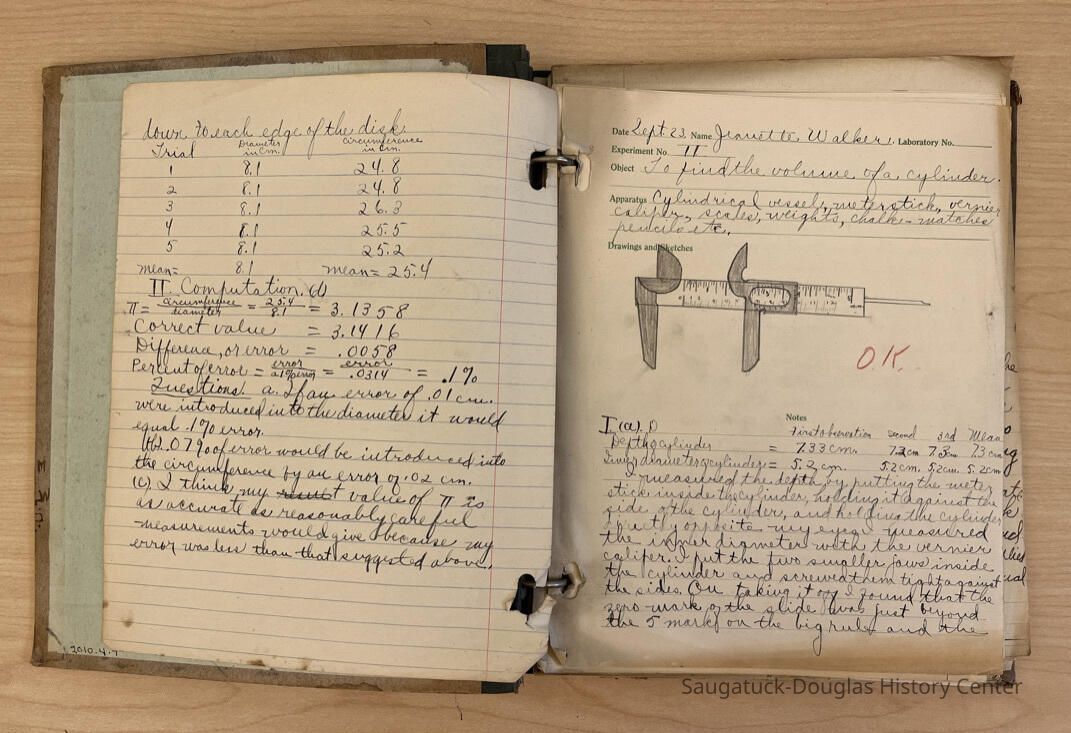 down to each edge of the disk.
Trial Diameter in Cm. Circumference in Cm.
1 8.1 24.8
2 8.1 24.8
3 8.1 26.3
4 8.1 25.5
5 8.1 25.2
mean= 8.1 mean = 25.4
II. Computation. (d)
π = circumference/diameter = 25.4/8.1 = 3.1358
Correct value = 3.1416
Difference, or error = .0058
Percent of error = error/a 1% error = error/.0314 = .1%
Questions. a. If an error of .01 cm.
were introduced into the diameter it would
equal .1% error.
(b). .079% of error would be introduced into
the circumference by an error of .02 cm.
(c). I think my value of π is
as accurate as reasonably careful
measurements would give because my
error was less than that suggested above.
2010.4.7
Date Sept. 23. Name Jeanette Walker. Laboratory No.
Experiment No. II
Object To find the volume of a cylinder.
Apparatus Cylindrical vessel, meter stick, vernier
caliper, scales, weights, chalk - matches
pencils etc.
Drawings and Sketches
O.K.
Notes
I (a). 1) First observation second 3rd Mean
Depth of cylinder = 7.33 cm. 7.2 cm 7.3 cm 7.3 cm
Inner diameter of cylinder = 5.2 cm. 5.2 cm. 5.2 cm. 5.2 cm
I measured the depth by putting the meter
stick inside the cylinder, holding it against the
side of the cylinder, and holding the cylinder
directly opposite my eyes. I measured
the inner diameter with the vernier
caliper. I put the two smaller jaws inside
the cylinder and screwed them tight against
the sides. On taking it off I found that the
zero mark of the slide was just beyond
the 5 mark on the big rule and the
Saugatuck-Douglas History Center